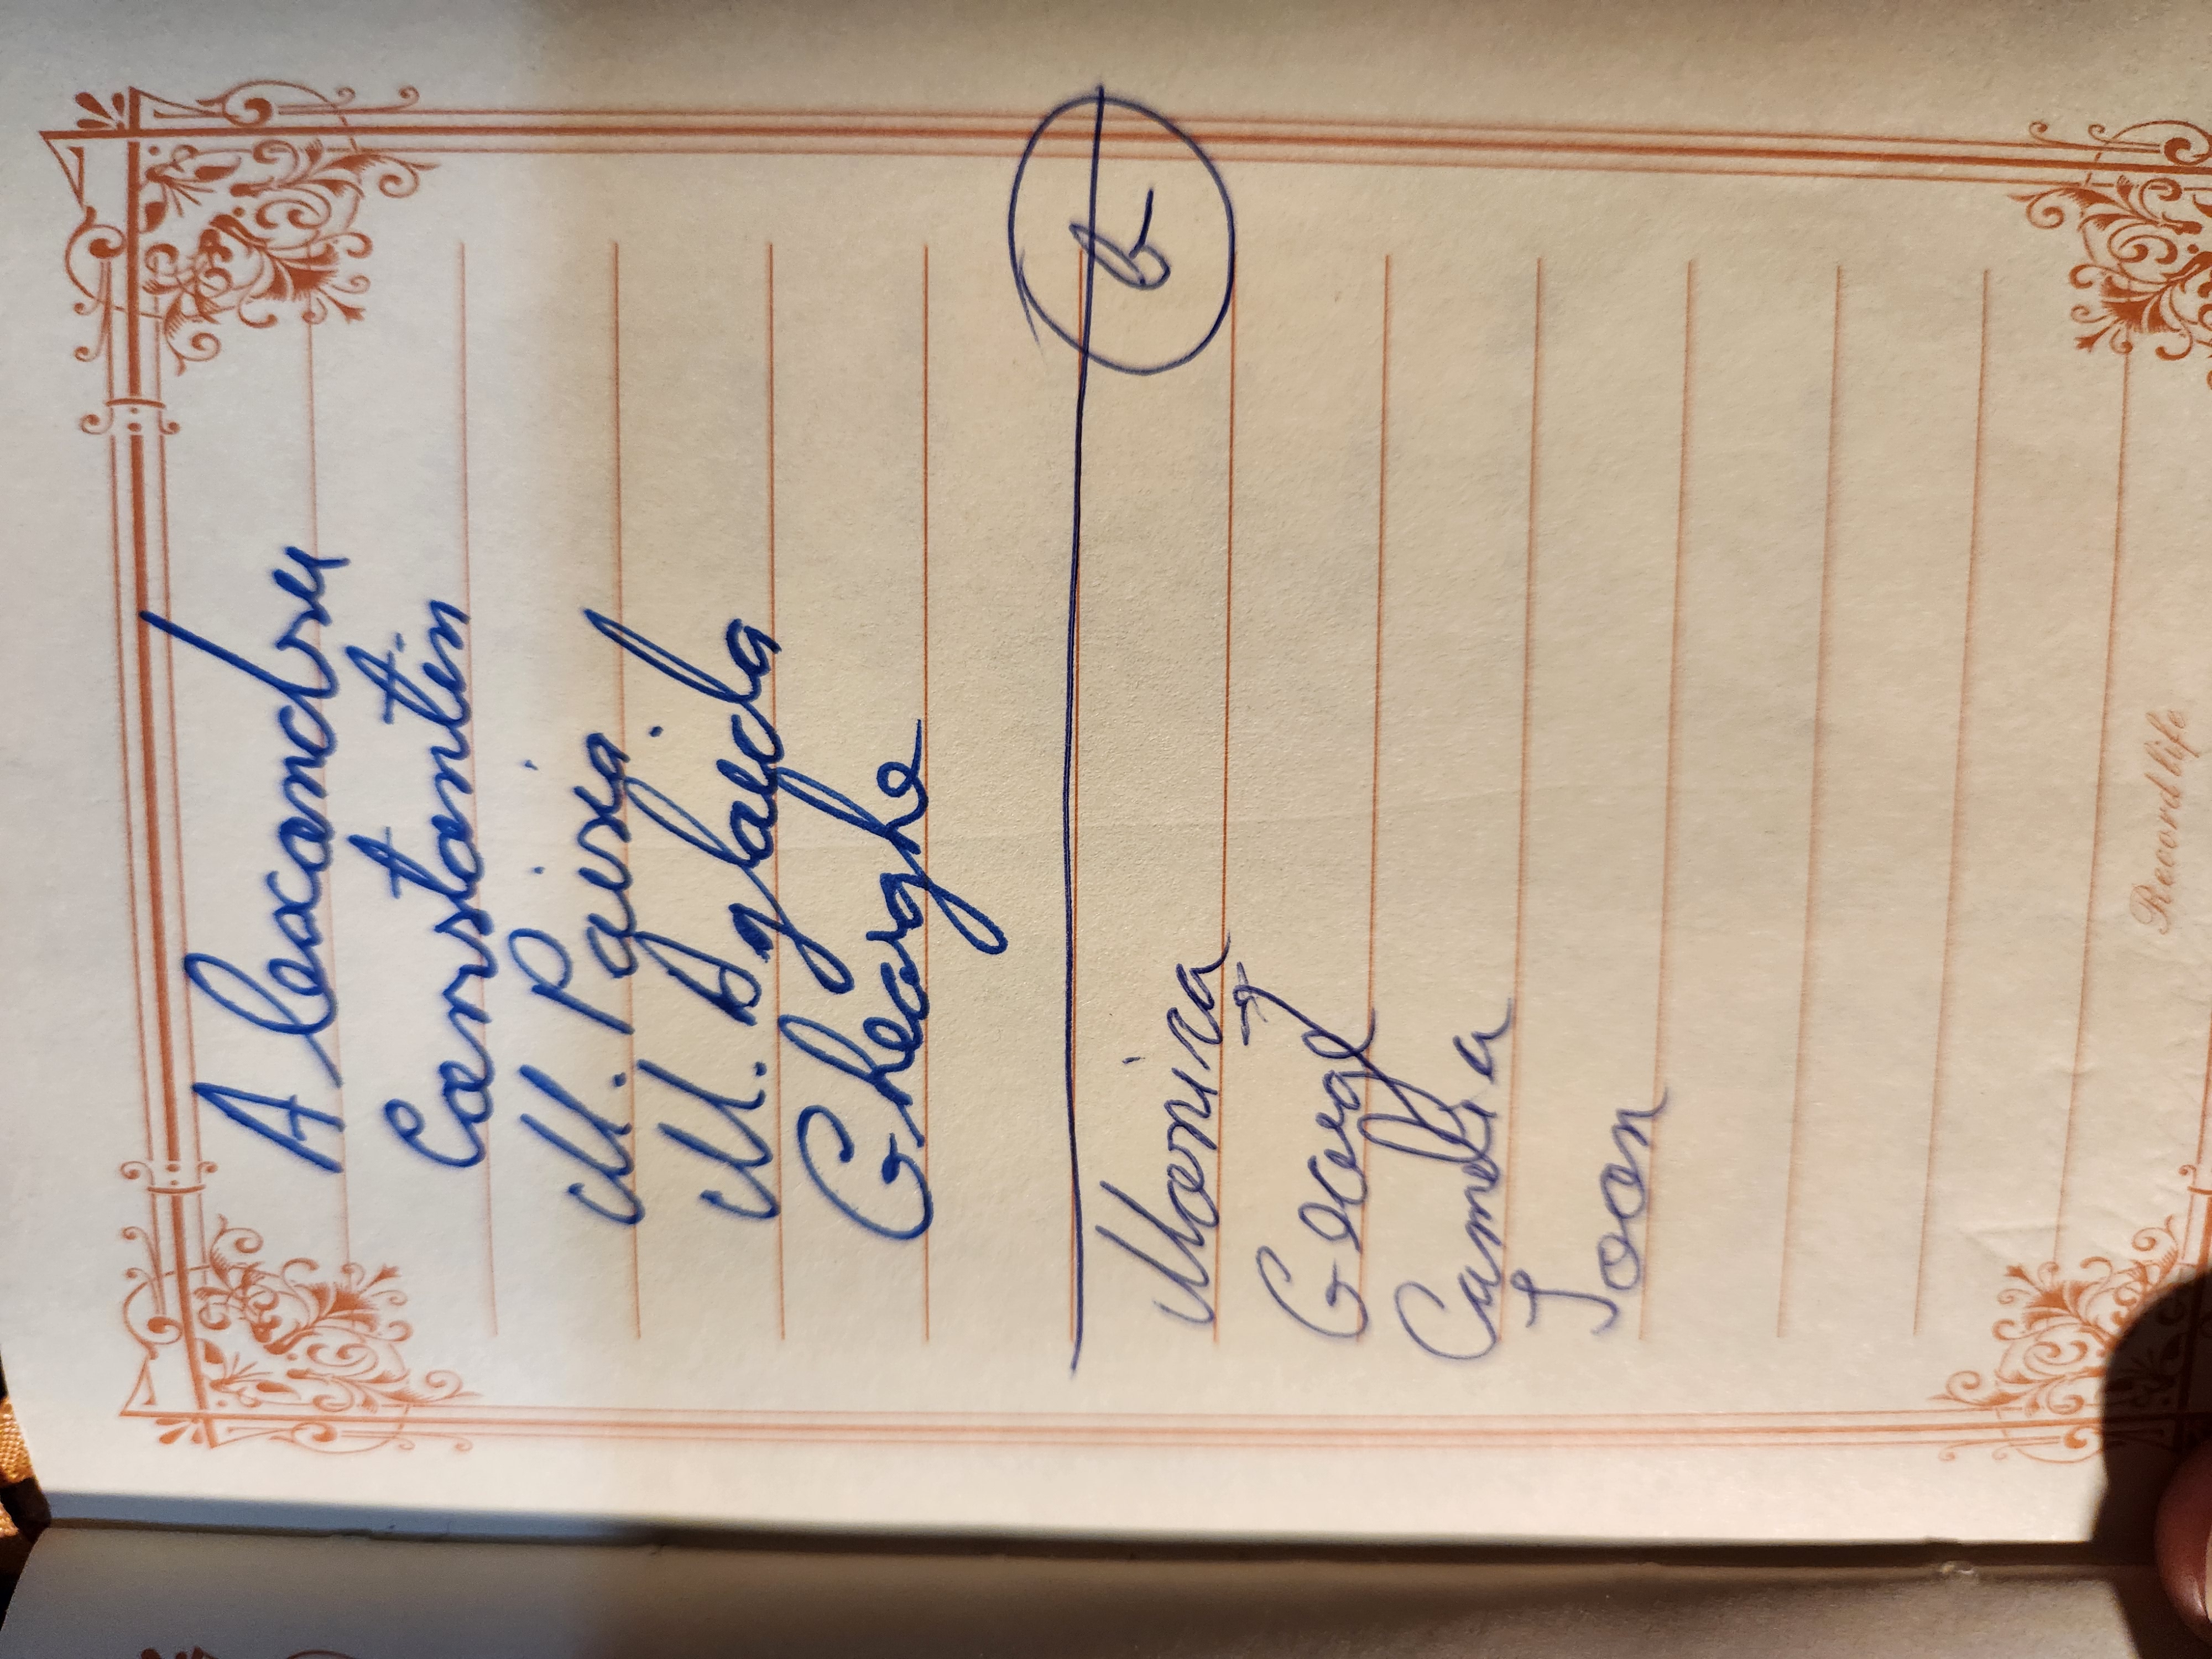 Alexandru
Constantin
M. Paisia.
M. Aglaida
Gheorghe
b
Monica
George
Camelia
Ioan
Record life